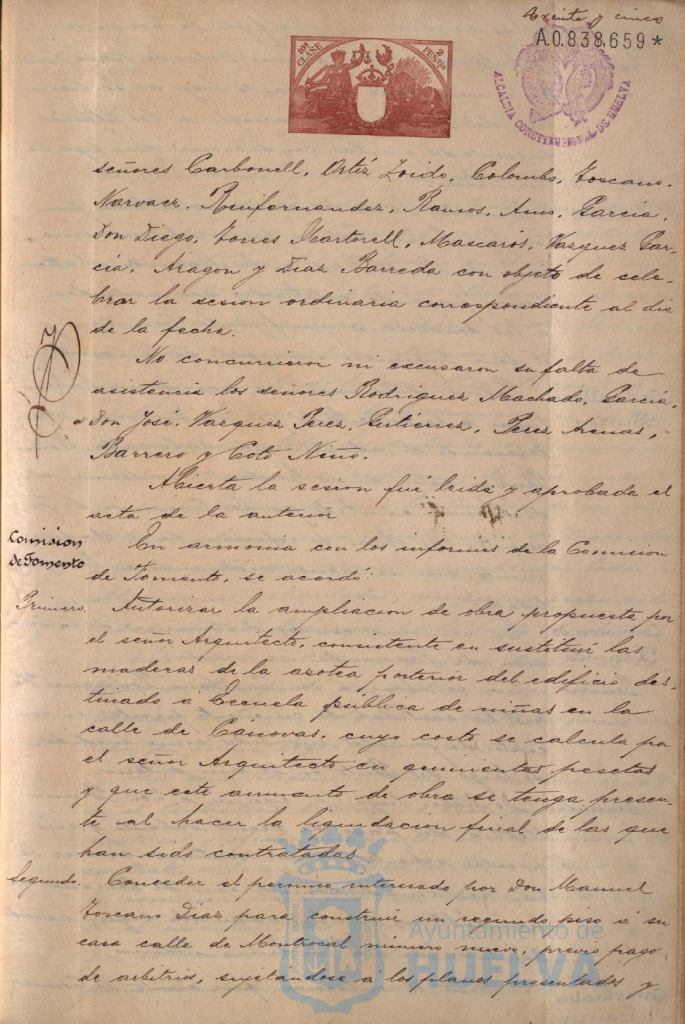 Treinta y cinco
A.0.838,659*
10ª CLASE
2 PESTAS
ALCALDIA CONSTITUCIONAL DE HUELVA
señores Carbonell, Ortiz Zoido, Colombo, Toscano,
Narvaez, Ruifernandez, Ramos, Amo, Garcia,
Don Diego, Torres Martorell, Mascarós, Vazquez Gar-
cia, Aragon y Diaz Barreda con objeto de cele-
brar la sesion ordinaria correspondiente al dia
de la fecha.
No concurrieron ni excusaron su falta de
asistencia los señores Rodriguez Machado, Garcia,
Don José, Vazquez Perez, Gutierrez, Perez Arenas,
Barrero y Coto Niño.
Abierta la sesion fué leida y aprobada el
acta de la anterior
Comision
de Fomento
En armonia con los informes de la Comision
de Fomento, se acordó:
Primero. Autorizar la ampliacion de obra propuesta por
el señor Arquitecto, consistente en sustituir las
maderas de la azotea posterior del edificio des-
tinado á Escuela pública de niñas en la
calle de Cánovas, cuyo costo se calcula por
el señor Arquitecto en quinientas pesetas
y que este aumento de obra se tenga presen-
te al hacer la liquidacion final de las que
han sido contratadas
Segundo. Conceder el permiso interesado por Don Manuel
Toscano Diaz para construir un segundo piso á su
casa calle de Montrocal numero nueve, previo pago
de arbitrios, sujetandose á los planos presentados y
Ayuntamiento de
HUELVA